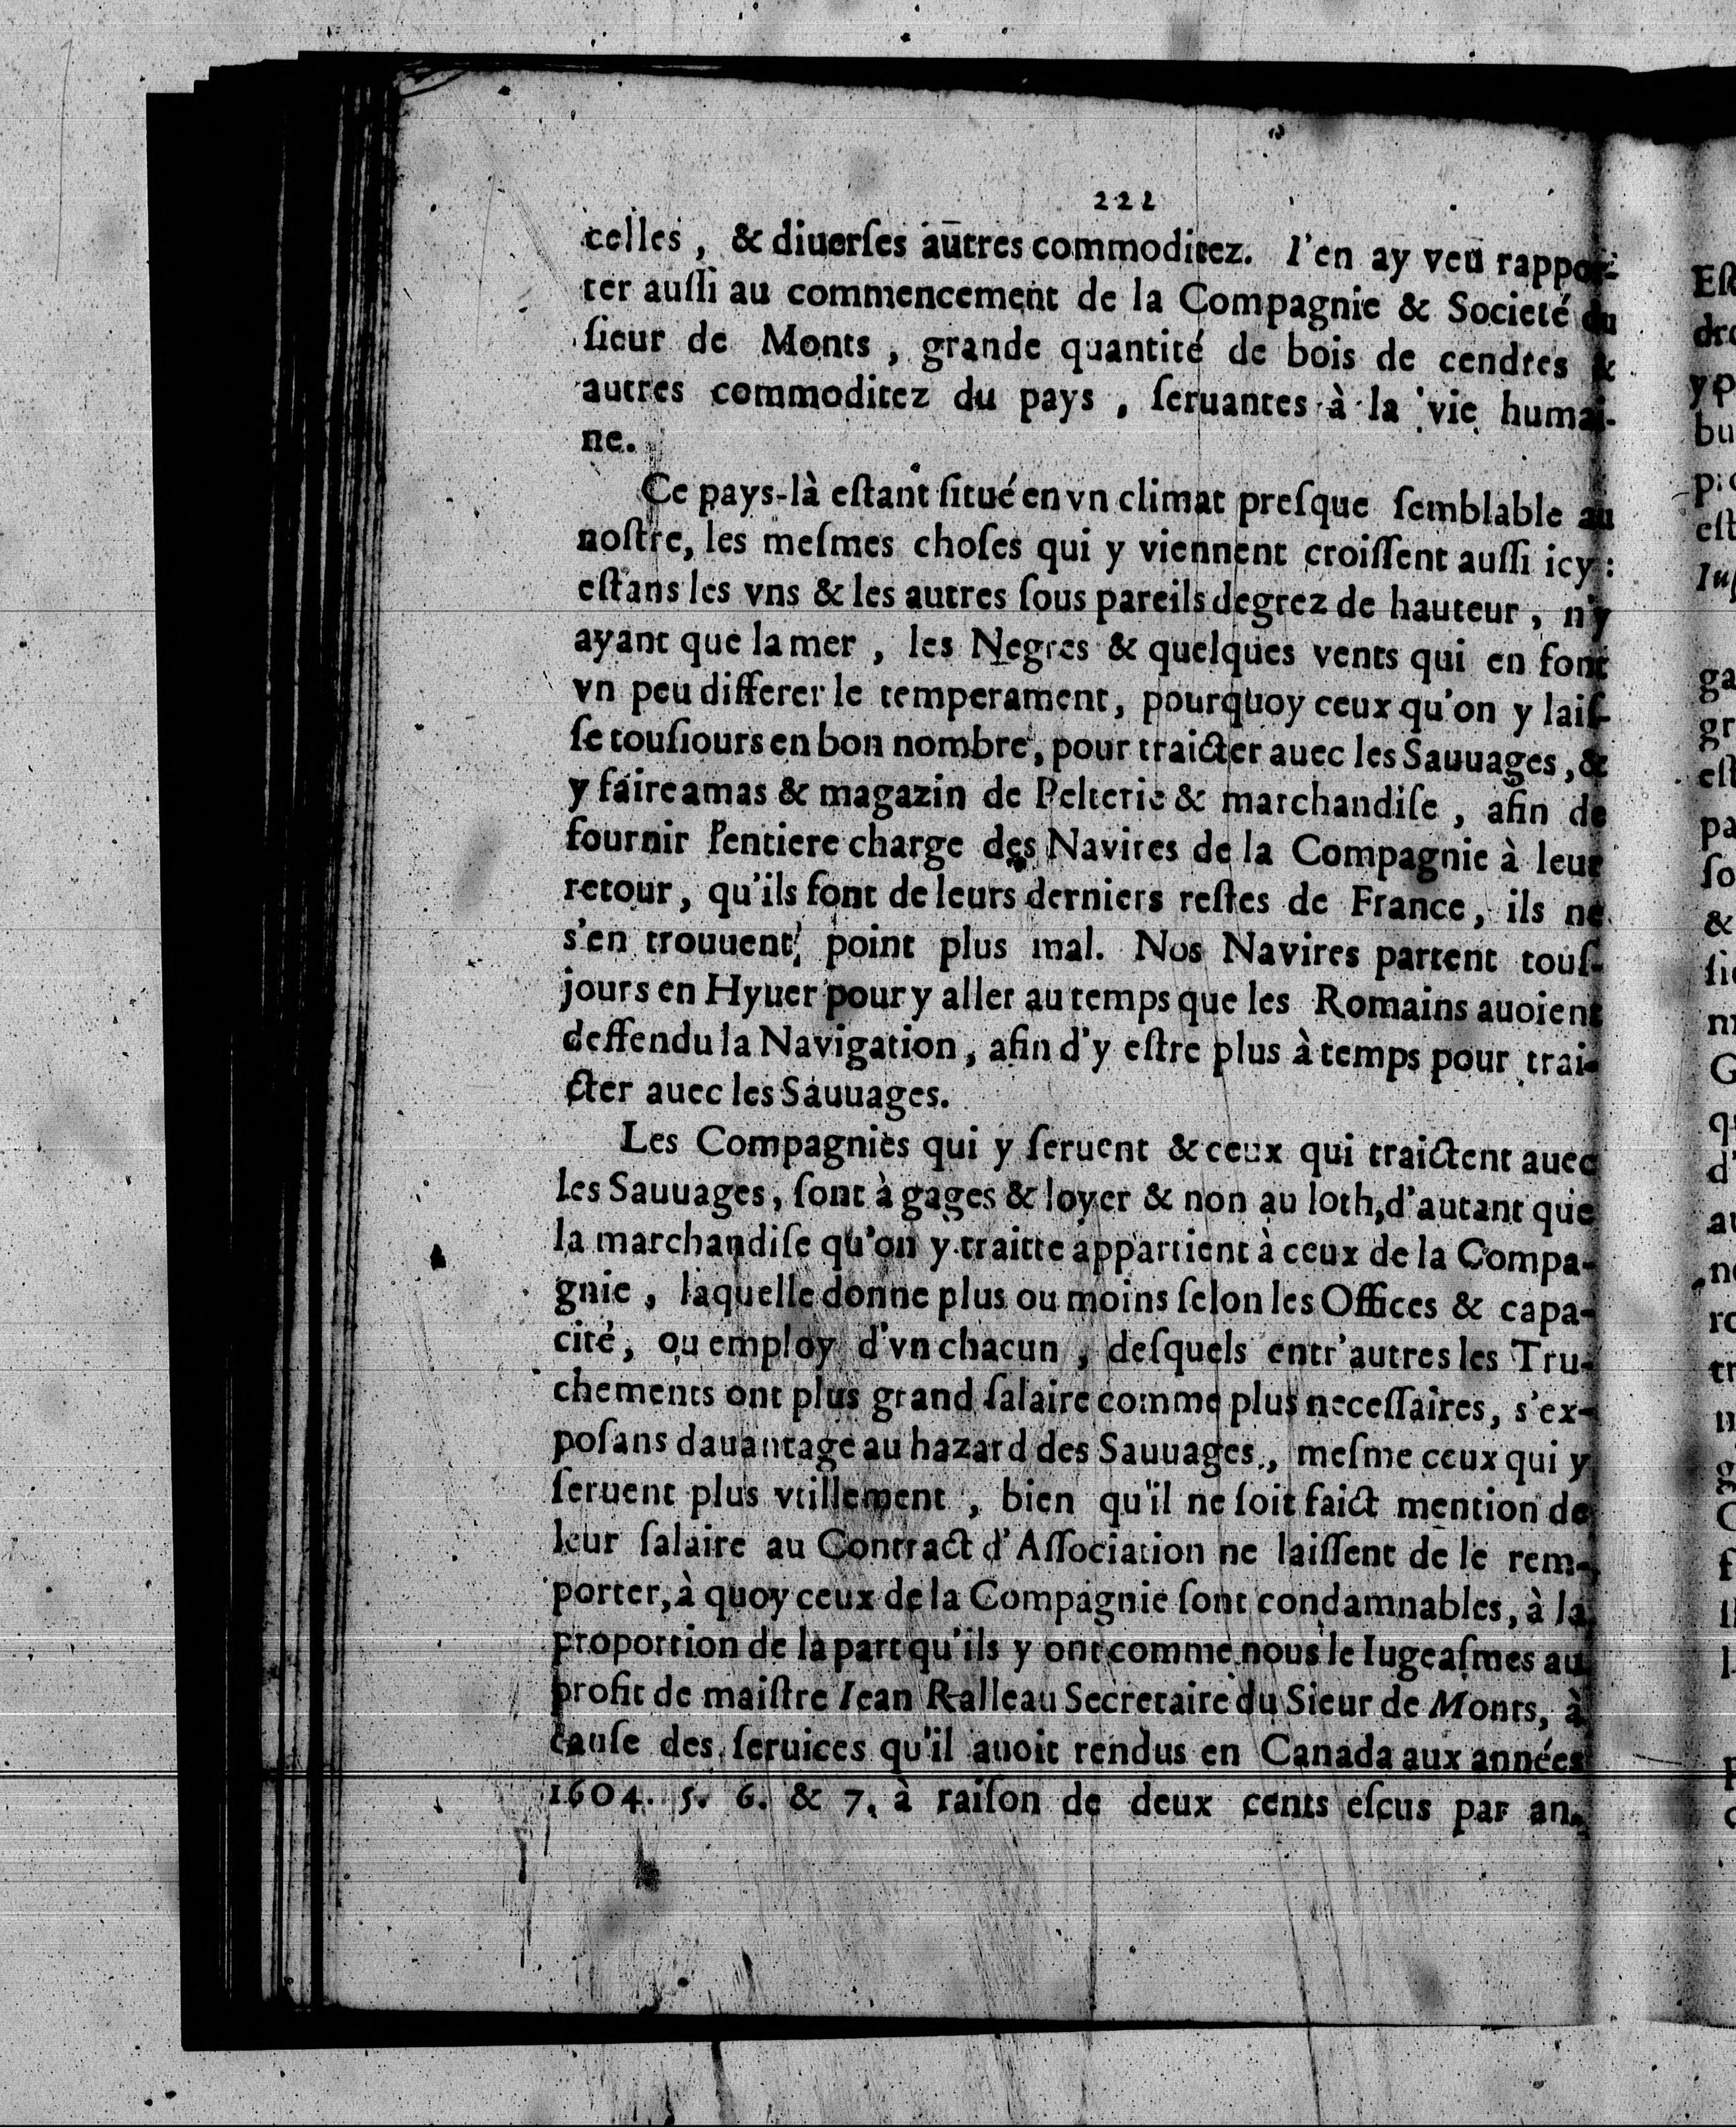 222
celles, & diuerſes autres commoditez. I'en ay veu rappor-
ter auſſi au commencement de la Compagnie & Societé du
ſieur de Monts, grande quantité de bois de cendres &
autres commoditez du pays, ſeruantes à la vie humai-
ne.
Ce pays-là eſtant ſitué en vn climat preſque ſemblable au
noſtre, les meſmes choſes qui y viennent croiſſent auſſi icy:
eſtans les vns & les autres ſous pareils degrez de hauteur, n'y
ayant que la mer, les Negres & quelques vents qui en font
vn peu differer le temperament, pourquoy ceux qu'on y laiſ-
ſe touſiours en bon nombre, pour traicter auec les Sauuages, &
y faire amas & magazin de Pelterie & marchandiſe, afin de
fournir l'entiere charge des Navires de la Compagnie à leur
retour, qu'ils font de leurs derniers reſtes de France, ils ne
s'en trouuent point plus mal. Nos Navires partent touſ-
jours en Hyuer pour y aller au temps que les Romains auoient
deffendu la Navigation, afin d'y eſtre plus à temps pour trai-
cter auec les Sauuages.
Les Compagnies qui y ſeruent & ceux qui traictent auec
les Sauuages, ſont à gages & loyer & non au loth, d'autant que
la marchandiſe qu'on y traitte appartient à ceux de la Compa-
gnie, laquelle donne plus ou moins ſelon les Offices & capa-
cité, ou employ d'vn chacun, deſquels entr'autres les Tru-
chements ont plus grand ſalaire comme plus neceſſaires, s'ex-
poſans dauantage au hazard des Sauuages, meſme ceux qui y
ſeruent plus vtillement, bien qu'il ne ſoit faict mention de
leur ſalaire au Contract d'Aſſociation ne laiſſent de le rem-
porter, à quoy ceux de la Compagnie ſont condamnables, à la
proportion de la part qu'ils y ont comme nous le Iugeaſmes au
profit de maiſtre Iean Ralleau Secretaire du Sieur de Monts, à
cauſe des ſeruices qu'il auoit rendus en Canada aux années
1604. 5. 6. & 7. à raiſon de deux cents eſcus par an.